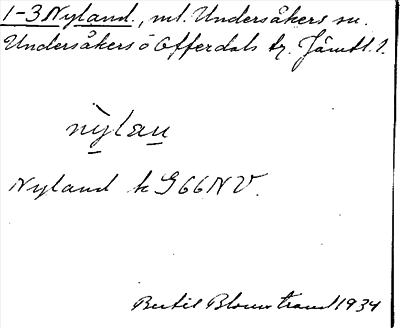 1-3 Nyland., ml. Undersåkers sn.
Undersåkers o Offerdals tg. Jämtl. l.
nỳlan
Nyland k G66NV.
Bertil Blomstrand 1934